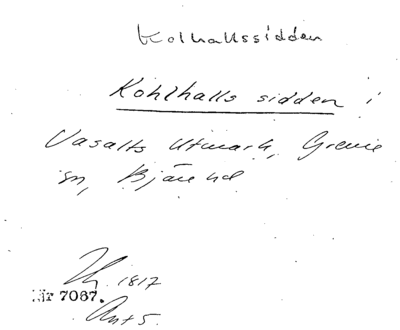 Kolhallssidden
Kohlhalls sidden i
Vasalts Utmark, Grevie
sn, Bjäre hd
1817
Nr 7087.
Akt 5.